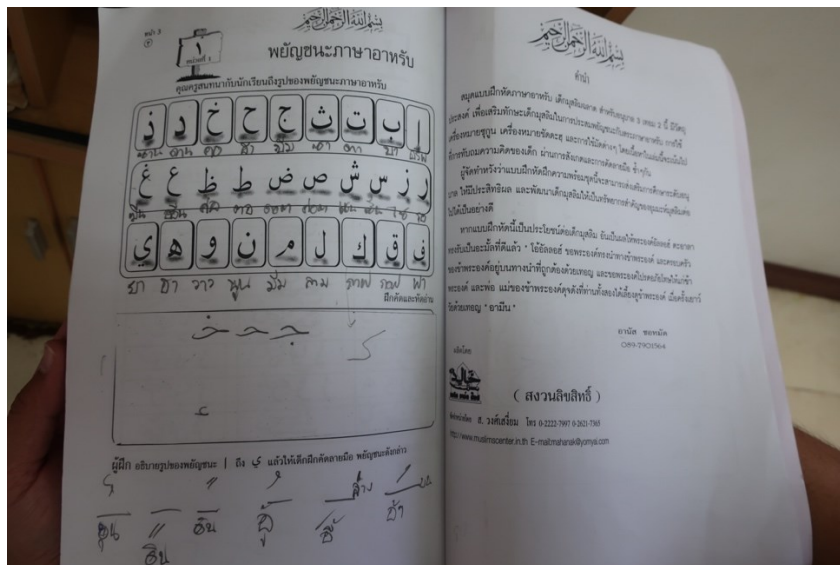 หน้า 3
بسم الله الرحمن الرحيم
١
หน่วยที่ 1
พยัญชนะภาษาอาหรับ
คุณครูสนทนากับนักเรียนถึงรูปของพยัญชนะภาษาอาหรับ
ا ب ت ث ج ح خ د ذ
ر ز س ش ص ض ط ظ ع غ
ف ق ك ل م ن و ه ي
ยา ฮา วาว นูน มีม ลาม กาฟ กอฟ ฟา
ฝึกคัดและหัดอ่าน
ผู้ฝึก อธิบายรูปของพยัญชนะ ا ถึง ي แล้วให้เด็กฝึกคัดลายมือ พยัญชนะดังกล่าว
بسم الله الرحمن الرحيم
คำนำ
สมุดแบบฝึกหัดภาษาอาหรับ เด็กมุสลิมฉลาด สำหรับอนุบาล 3 เล่ม 2 นี้ มีวัตถุ
ประสงค์ เพื่อเสริมทักษะเด็กมุสลิมในการประสมพยัญชนะกับสระภาษาอาหรับ การใช้
เครื่องหมายซูกูน เครื่องหมายชัดดะฮ และการใช้มัดต่างๆ โดยเนื้อหาในเล่มนี้จะเน้นไป
ที่การทับถมความคิดของเด็ก ผ่านการสังเกตและการคัดลายมือ ซ้ำๆกัน
ผู้จัดทำหวังว่าแบบฝึกหัดฝึกความพร้อมชุดนี้จะสามารถส่งเสริมการศึกษาระดับอนุ
บาล ให้มีประสิทธิผล และพัฒนาเด็กมุสลิมให้เป็นทรัพยากรสำคัญของชุมชนมุสลิมต่อ
ไปได้เป็นอย่างดี
หากแบบฝึกหัดนี้เป็นประโยชน์ต่อเด็กมุสลิม อันเป็นผลให้พระองค์อัลลอฮ์ ตะอาลา
ทรงรับเป็นอะมั้ลที่ดีแล้ว " โอ้อัลลอฮ์ ขอพระองค์ทรงนำทางข้าพระองค์ และครอบครัว
ของข้าพระองค์อยู่บนทางนำที่ถูกต้องด้วยเทอญ และขอพระองค์โปรดอภัยโทษให้แก่ข้า
พระองค์ และพ่อ แม่ของข้าพระองค์ดุจดังที่ท่านทั้งสองได้เลี้ยงดูข้าพระองค์ เมื่อครั้งเยาว์
วัยด้วยเทอญ " อามีน "
089-7901564
ผลิตโดย
( สงวนลิขสิทธิ์ )
ส. วงศ์เสงี่ยม โทร 0-2222-7997 0-2621-7365
http://www.muslimscenter.in.th E-mail:mahanak@yomya.com